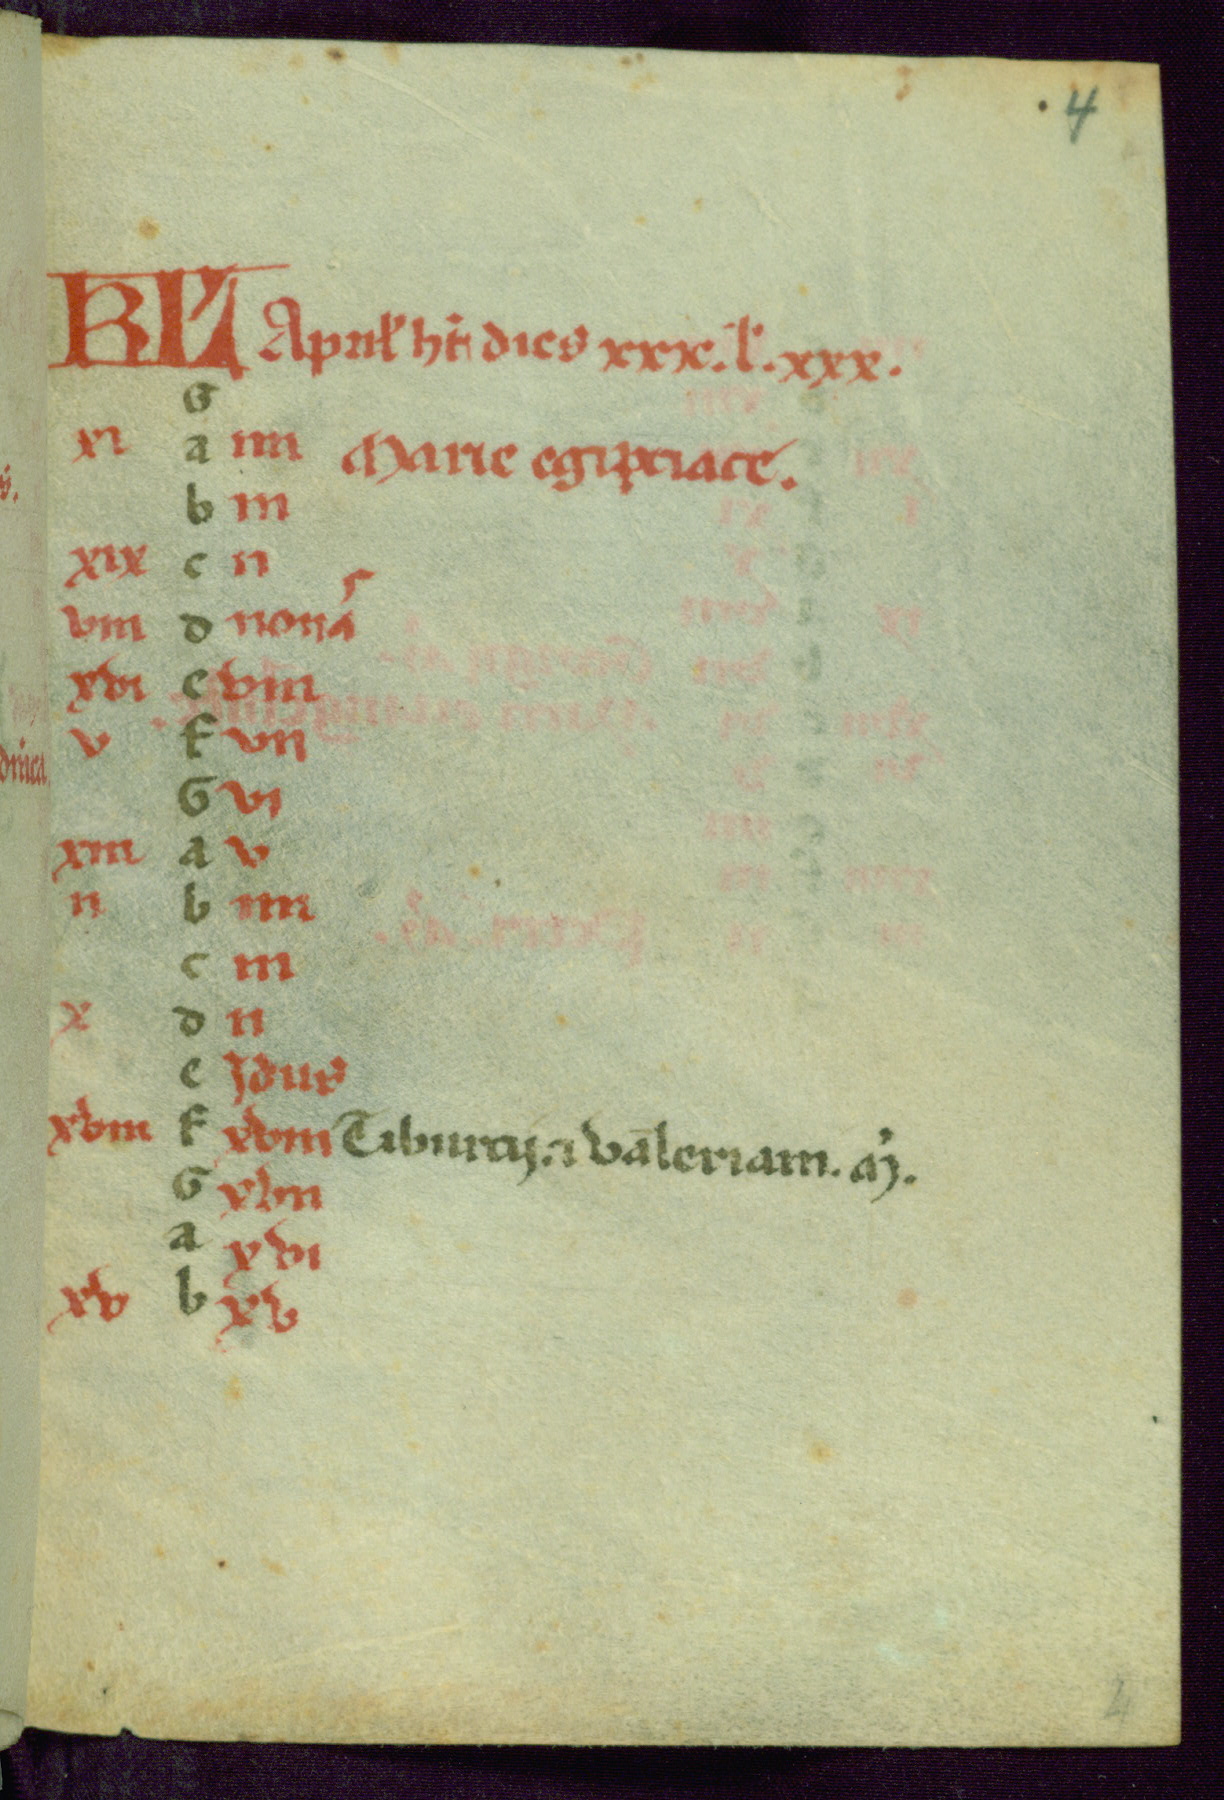 4
KL Aprił hr̃t dies xxx. ł. xxx.
G
xi a iiii Marie egiptiace.
b iii
xix c ii
viii d nonas
xvi e viii
v f vii
G vi
xiii a v
ii b iiii
c iii
x d ii
e Idus
xviii f xviii Tiburcij. ⁊ valeriani. m̃.
G xvii
a xvi
xv b xv
4